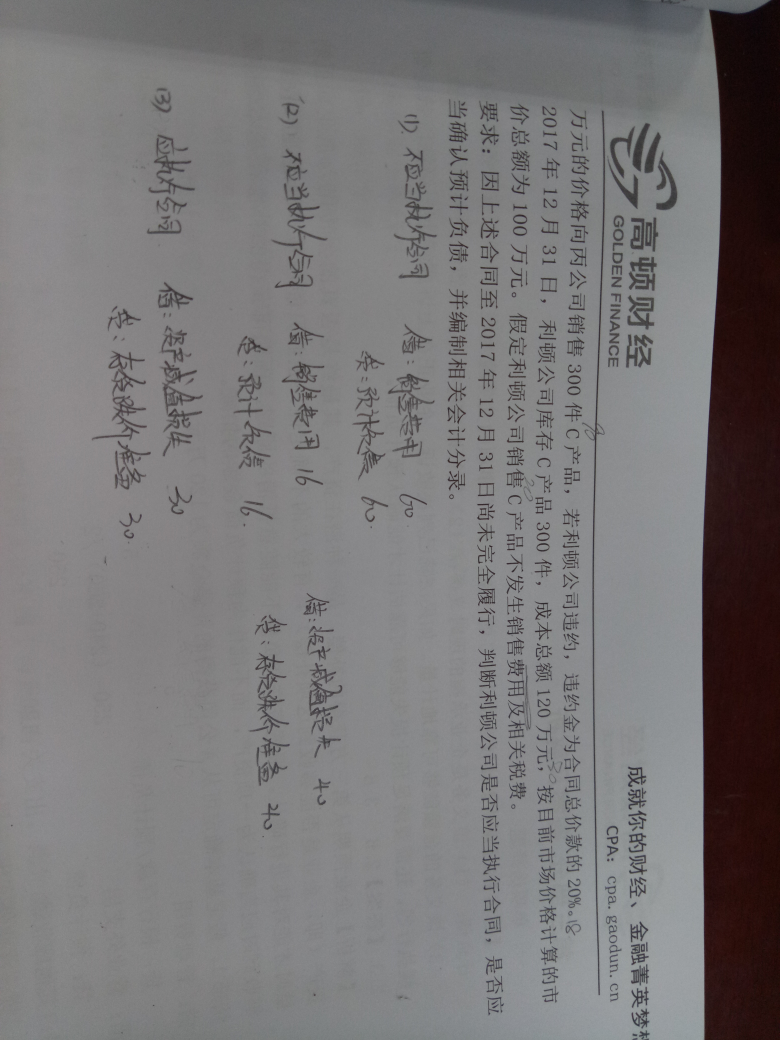 高顿财经
GOLDEN FINANCE
成就你的财经、金融菁英梦想
CPA: cpa.gaodun.cn
万元的价格向丙公司销售 300 件 C 产品，若利顿公司违约，违约金为合同总价款的 20%。18
90
2017 年 12 月 31 日，利顿公司库存 C 产品 300 件，成本总额 120 万元，按目前市场价格计算的市
30
价总额为 100 万元。假定利顿公司销售 C 产品不发生销售费用及相关税费。
20
要求：因上述合同至 2017 年 12 月 31 日尚未完全履行，判断利顿公司是否应当执行合同，是否应
当确认预计负债，并编制相关会计分录。
(1) 不应当执行合同 借：销售费用 60
贷：预计负债 60.
(2) 不应当执行合同 借：销售费用 16 借：资产减值损失 40
贷：预计负债 16. 贷：存货跌价准备 40.
(3) 应执行合同 借：资产减值损失 30
贷：存货跌价准备 30.